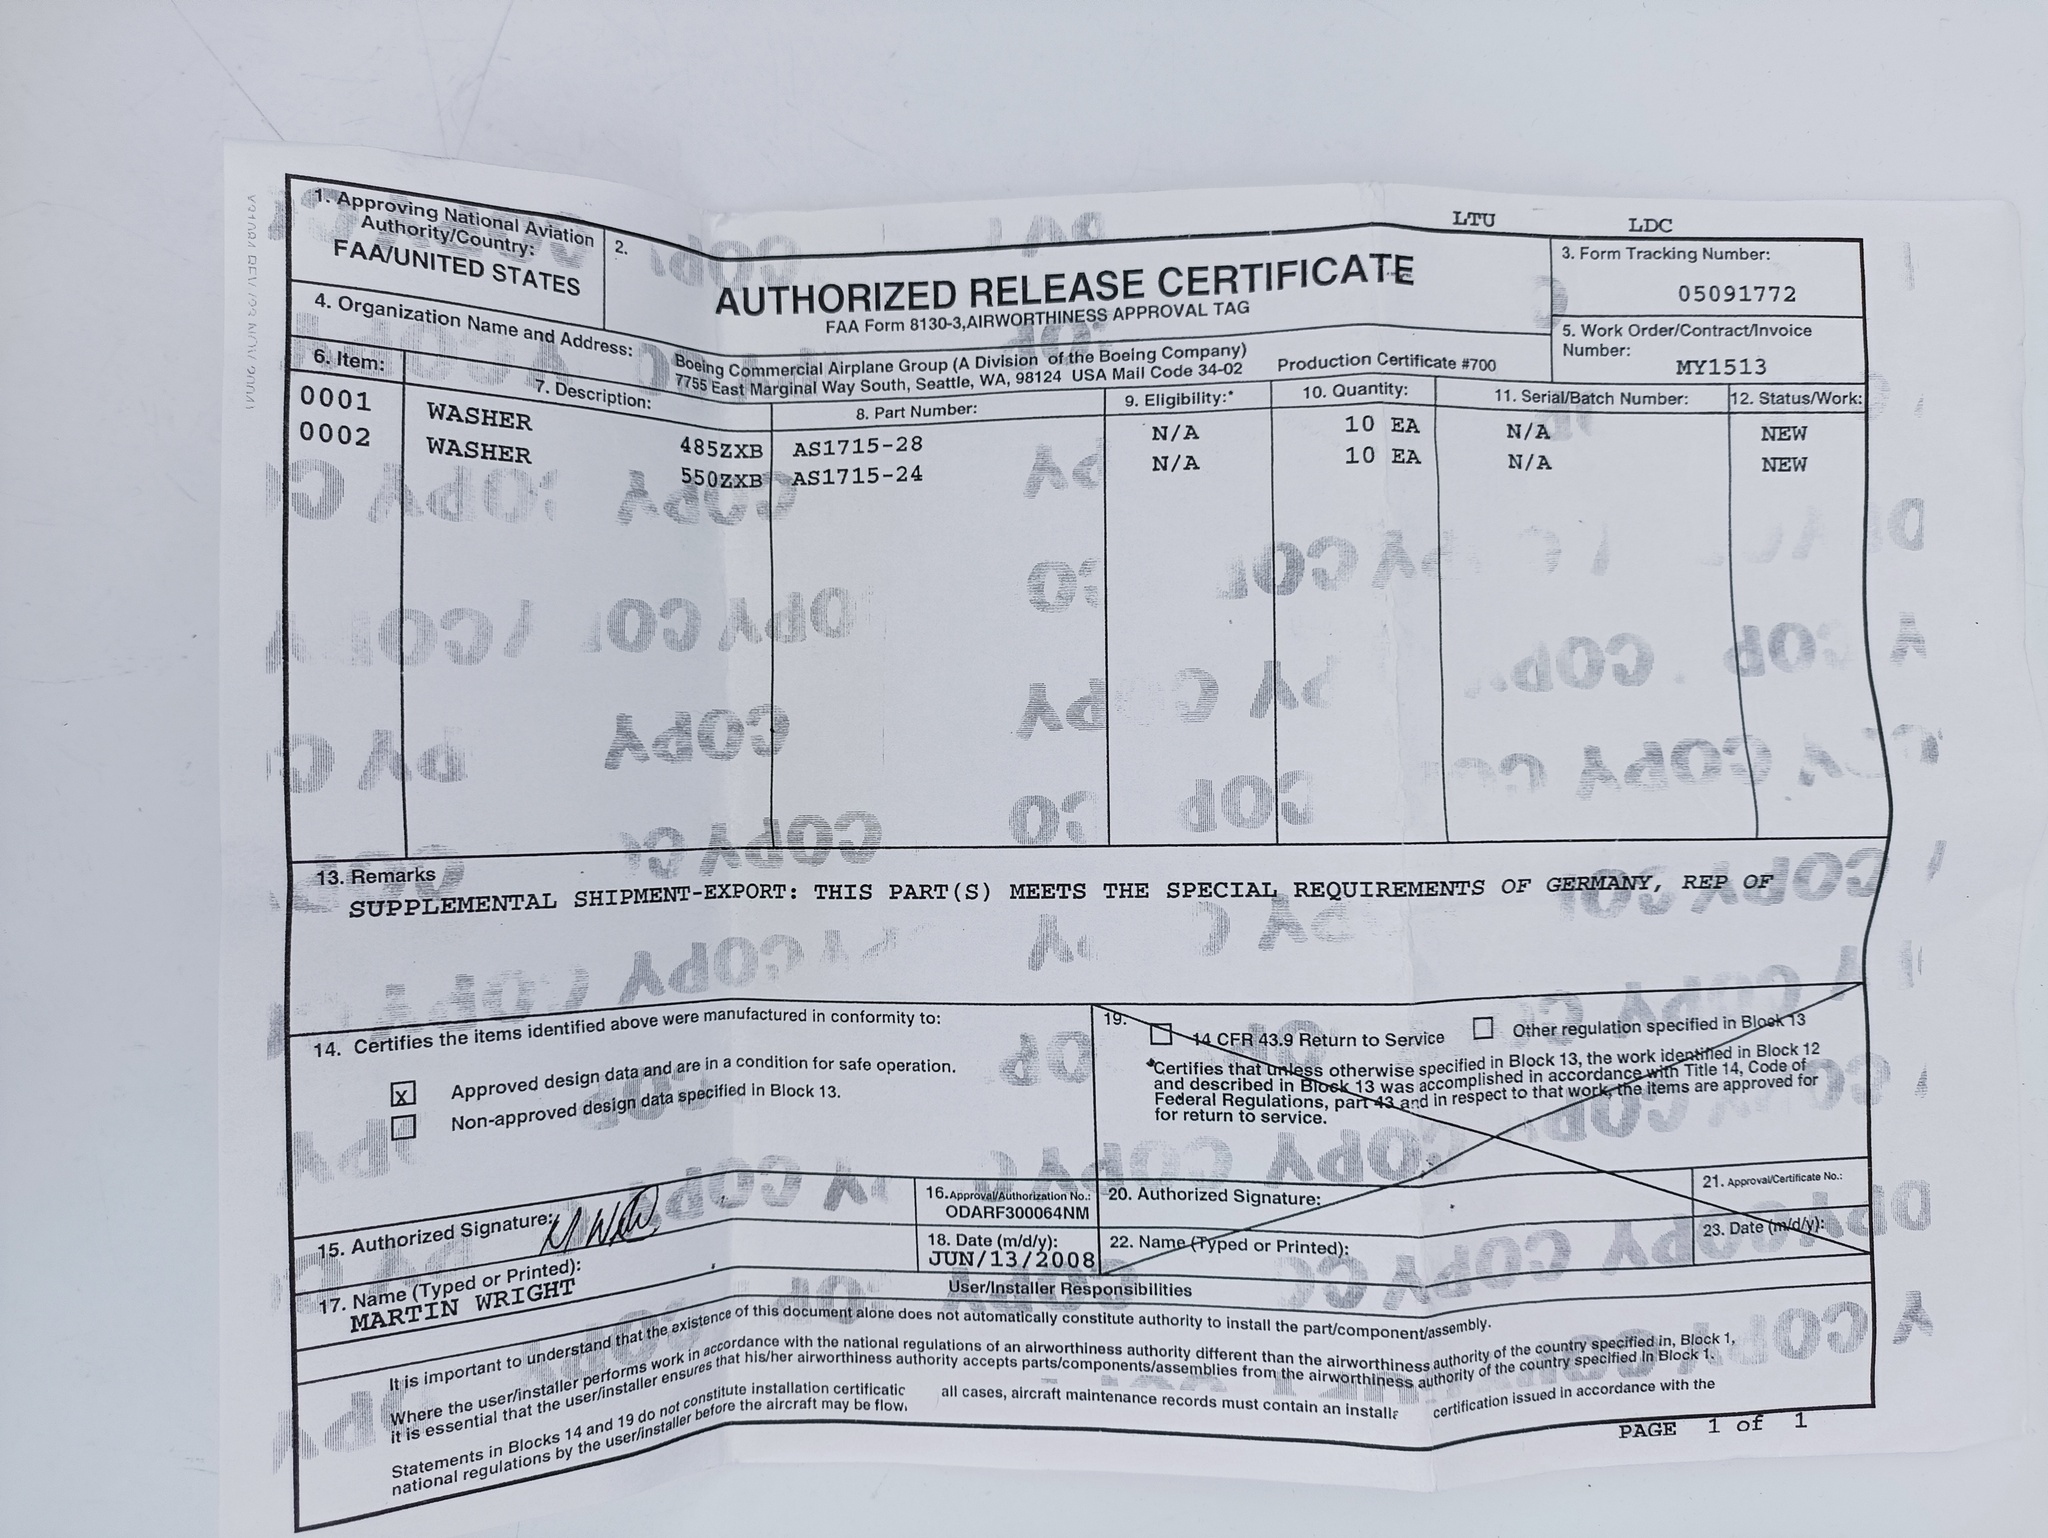 LTU LDC
1. Approving National Aviation
Authority/Country:
FAA/UNITED STATES
2.
AUTHORIZED RELEASE CERTIFICATE
FAA Form 8130-3,AIRWORTHINESS APPROVAL TAG
3. Form Tracking Number:
05091772
4. Organization Name and Address:
Boeing Commercial Airplane Group (A Division of the Boeing Company)
7755 East Marginal Way South, Seattle, WA, 98124 USA Mail Code 34-02
Production Certificate #700
5. Work Order/Contract/Invoice
Number:
MY1513
6. Item: 7. Description: 8. Part Number: 9. Eligibility:* 10. Quantity: 11. Serial/Batch Number: 12. Status/Work:
0001 WASHER 485ZXB AS1715-28 N/A 10 EA N/A NEW
0002 WASHER 550ZXB AS1715-24 N/A 10 EA N/A NEW
13. Remarks
SUPPLEMENTAL SHIPMENT-EXPORT: THIS PART(S) MEETS THE SPECIAL REQUIREMENTS OF GERMANY, REP OF
14. Certifies the items identified above were manufactured in conformity to:
x Approved design data and are in a condition for safe operation.
Non-approved design data specified in Block 13.
19. 14 CFR 43.9 Return to Service Other regulation specified in Block 13
*Certifies that unless otherwise specified in Block 13, the work identified in Block 12
and described in Block 13 was accomplished in accordance with Title 14, Code of
Federal Regulations, part 43 and in respect to that work, the items are approved for
for return to service.
15. Authorized Signature:
16. Approval/Authorization No.:
ODARF300064NM
20. Authorized Signature:
21. Approval/Certificate No.:
17. Name (Typed or Printed):
MARTIN WRIGHT
18. Date (m/d/y):
JUN/13/2008
22. Name (Typed or Printed):
23. Date (m/d/y):
User/Installer Responsibilities
It is important to understand that the existence of this document alone does not automatically constitute authority to install the part/component/assembly.
Where the user/installer performs work in accordance with the national regulations of an airworthiness authority different than the airworthiness authority of the country specified in, Block 1,
it is essential that the user/installer ensures that his/her airworthiness authority accepts parts/components/assemblies from the airworthiness authority of the country specified in Block 1.
Statements in Blocks 14 and 19 do not constitute installation all cases, aircraft maintenance records must contain an certification issued in accordance with the
national regulations by the user/installer before the aircraft may be
PAGE 1 of 1